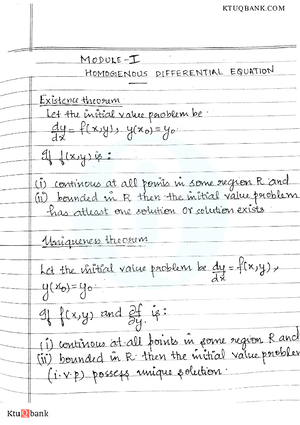 KTUQBANK.COM
MODULE-I
HOMOGENOUS DIFFERENTIAL EQUATION
Existence theorum
Let the initial value problem be
dy/dx = f(x,y), y(x₀)=y₀.
If f(x,y) is :
(i) continous at all points in some region R and
(ii) bounded in R then the initial value problem
has atleast one solution or solution exists
Uniqueness theorum
Let the initial value problem be dy/dx = f(x,y),
y(x₀)=y₀
If f(x,y) and ∂f/∂y is :
(i) continous at all points in some region R and
(ii) bounded in R then the initial value problem
(i.v.p) possess unique solution.
KtuQbank